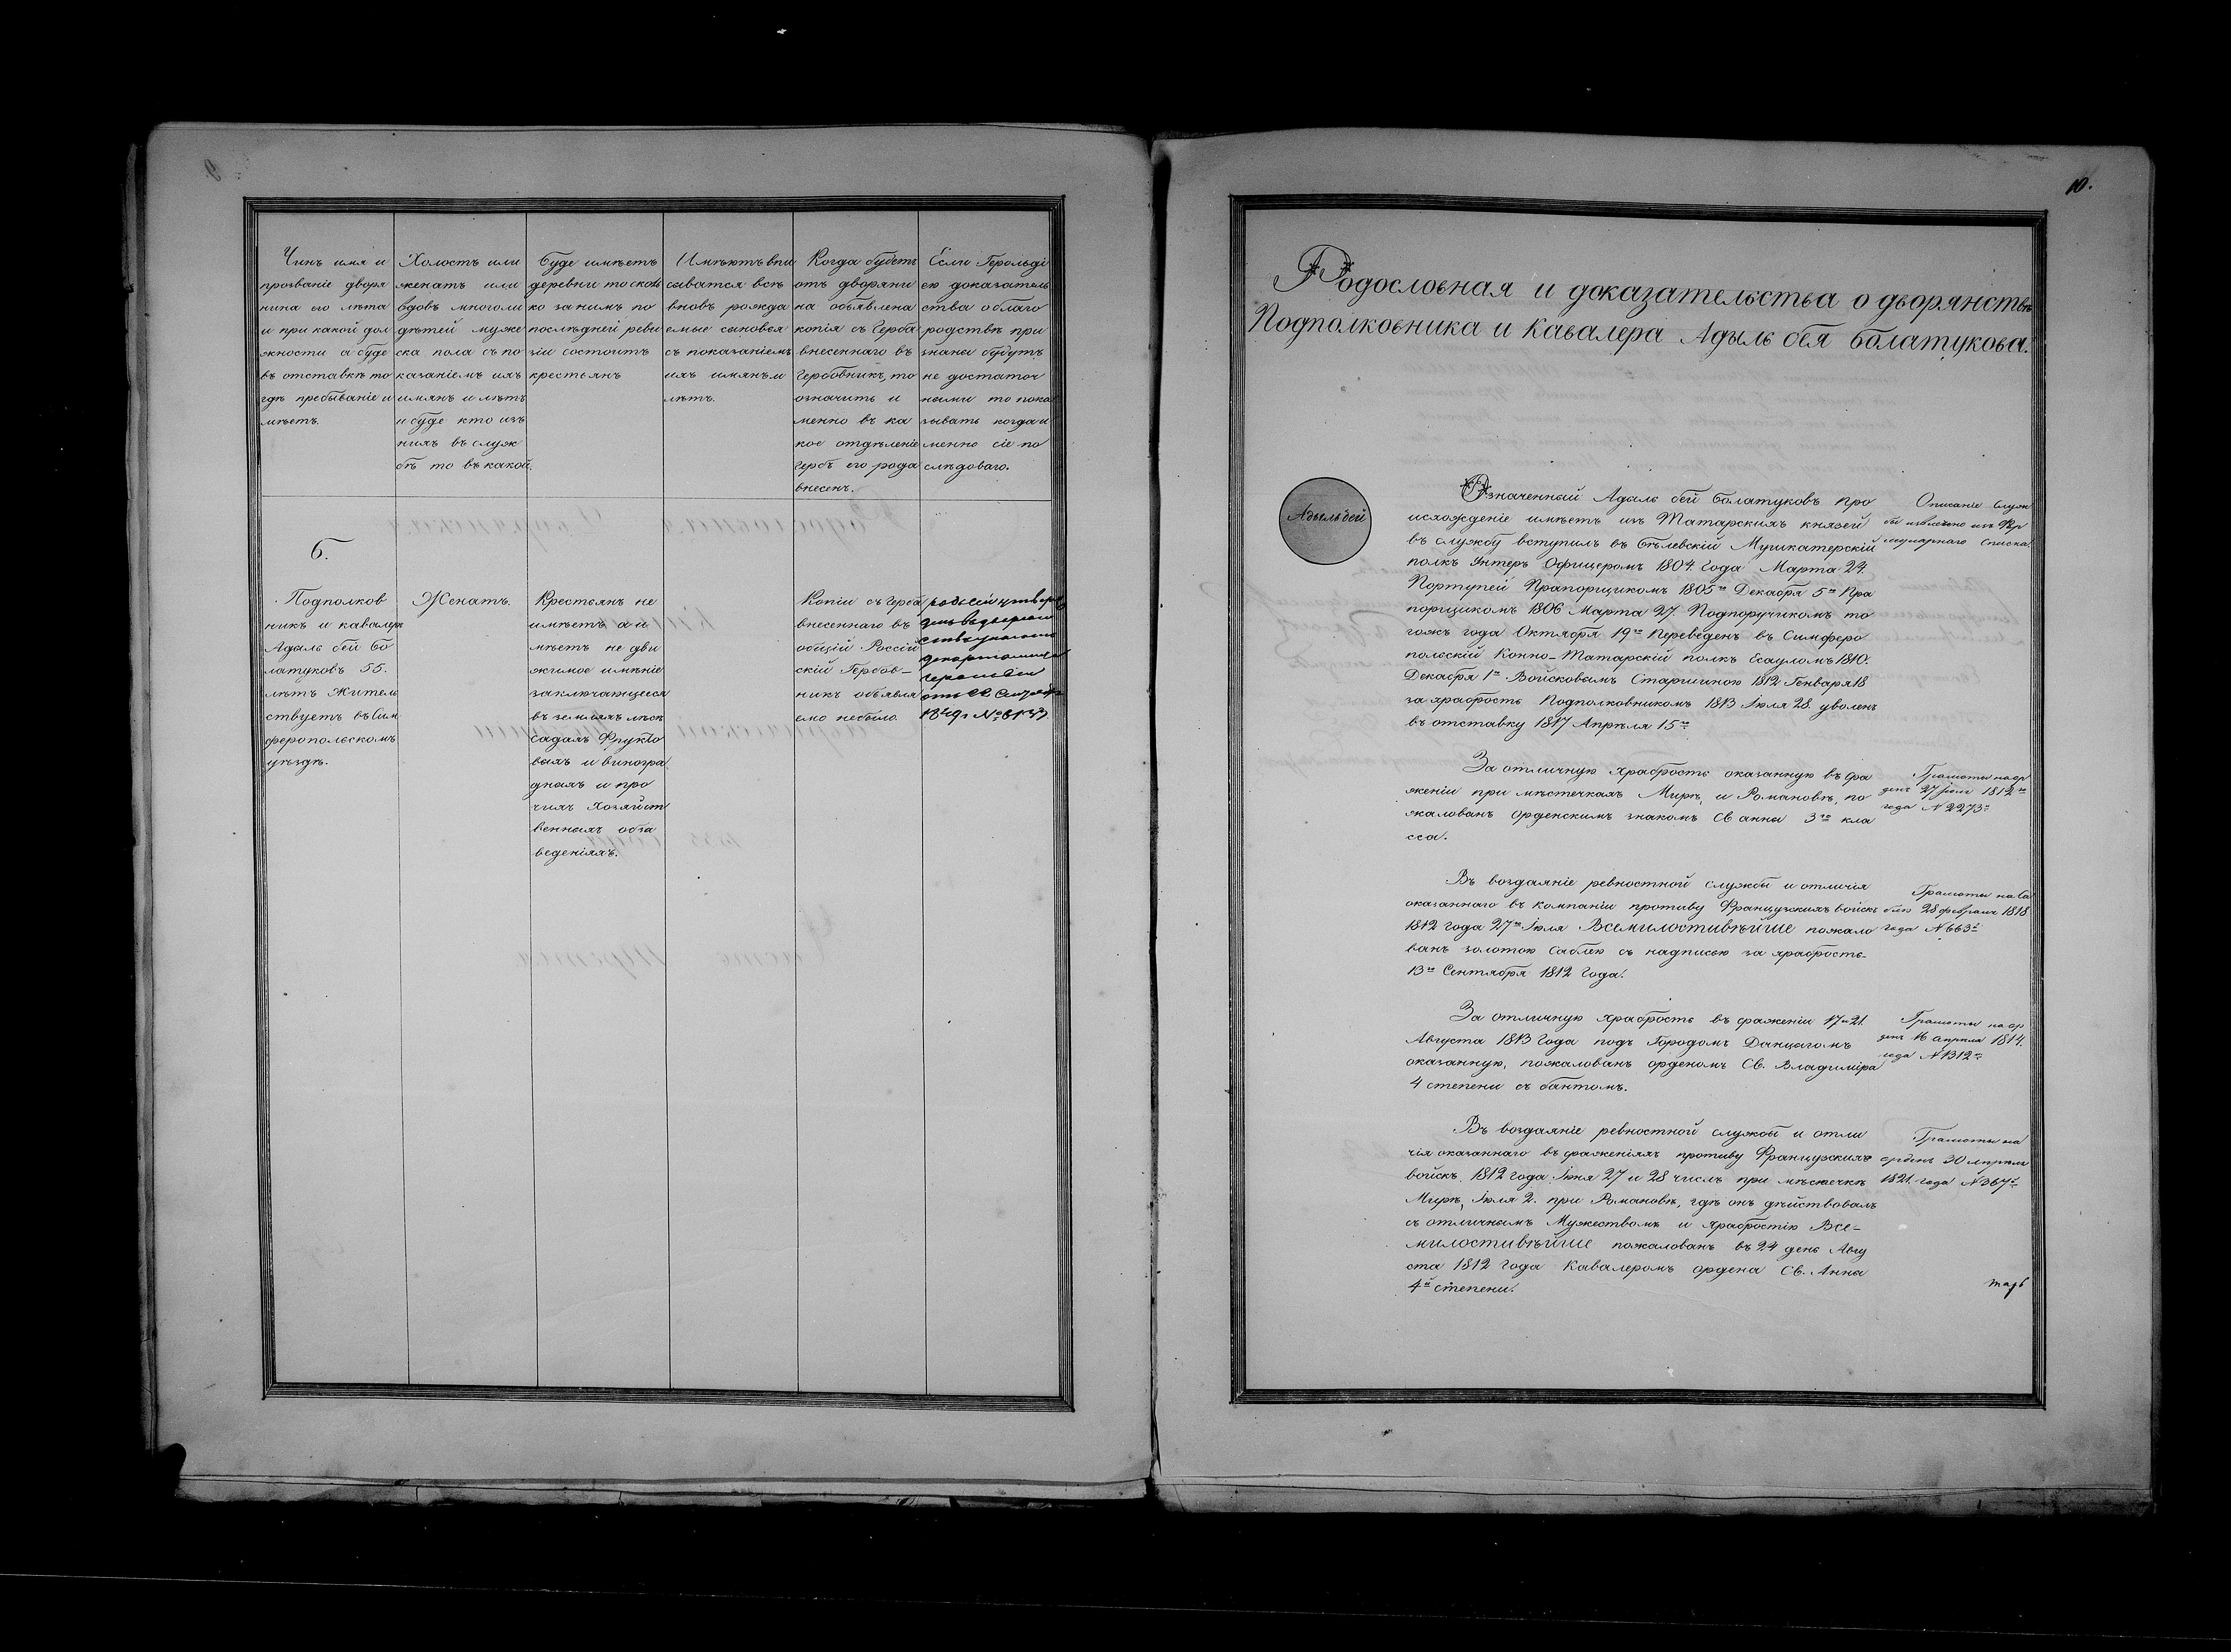 Чинъ имя и
прозваніе дворя
нина его лѣта
и при какой дол
жности а буде
въ отставкѣ то
гдѣ пребываніе и
мѣетъ.
Холостъ или
женатъ или
вдовъ много ли
дѣтей муже
ска пола съ по
казаніемъ ихъ
имянъ и лѣтъ
и буде кто изъ
нихъ въ служ
бѣ то въ какой.
Буде имѣетъ
деревни то сколь
ко за нимъ по
послѣдней реви
зіи состоитъ
крестьянъ
Имѣютъ впи
сыватся всѣ
вновь рожда
емые сыновья
съ показаніемъ
ихъ имянъ и
лѣтъ.
Когда будетъ
отъ дворяни
на объявлена
копія съ Герба
внесеннаго въ
Гербовникъ, то
означить и
менно въ ка
кое отдѣленіе
Гербъ его рода
внесенъ.
Если Герольді
ею доказатель
ства о благо
родствѣ при
знаны будутъ
не достаточ
ными то пока
зывать когда и
менно сіе по
слѣдовало.
Б.
Подполков
никъ и кавалеръ
Адыль бей Бо
латуковъ 55.
лѣтъ Житель
ствуетъ въ Сим
феропольскомъ
уѣздѣ.
Женатъ.
Крестьянъ не
имѣетъ а и
мѣетъ не дви
жимое имѣніе
заключающееся
въ земляхъ лѣсѣ
садахъ Фрукто
выхъ и виногра
дныхъ и про
чихъ Хозяйст
венныхъ обза
веденіяхъ.
Копіи съ Герба
внесеннаго въ
общій Россій
скій Гербов-
никъ объявля
емо небыло.
департамента
Герольдіи
1849г №
10.
Родословная и доказательства о дворянствѣ
Подполковника и Кавалера Адыль бея Болатукова.
Адыль бей
Означенный Адыль бей Болатуковъ про
исхожденіе имѣетъ изъ Татарскихъ князей
въ службу вступилъ въ Бѣлевскій Мушкатерскій
полкъ Унтеръ Офицеромъ 1804. года Марта 24.
Портупей Прапорщикомъ 1805го Декабря 5го Пра
порщикомъ 1806 Марта 27 Подпоручикомъ то
гожъ года Октября 19го Переведенъ въ Симферо
польскій Конно-Татарскій полкъ Есауломъ 1810.
Декабря 1го Войсковымъ Старшиною 1812 Генваря 18
за храбрость Подполковникомъ 1813 Іюля 28. уволенъ
въ отставку 1817 Апрѣля 15го
Описаніе Служ
бы извлечено изъ Фор
мулярнаго Списка.
За отличную храбрость оказанную въ сра
женіи при мѣстечкахъ Мирѣ, и Романовѣ, по
жалованъ орденскимъ знакомъ Св анны 3го кла
сса.
Грамоты на ор
денъ 27 Іюля 1812го
года № 2273.
Въ воздаяніе ревностной службы и отличія
оказаннаго въ компаніи противу Французскихъ войскъ
1812 года 27го Іюля Всемилостивѣйше пожало
ванъ золотою Саблею съ надписью за храбрость
13го Сентября 1812 Года.
Грамоты на Са
блю 28 февраля 1818.
года № 663.
За отличную храбрость въ сраженіи 17 и 21.
Августа 1813 Года подъ Городомъ Данцигомъ
оказанную, пожалованъ орденомъ Св. Владиміра
4 степени съ бантомъ.
Грамоты на ор
денъ 16 апрѣля 1814.
года № 1312
Въ воздаяніе ревностной службы и отли
чія оказаннаго въ сраженіяхъ противу Французскихъ
войскъ. 1812 года Іюня 27 и 28 числъ при мѣстечкѣ
Мирѣ, Іюля 2. при Романовѣ, гдѣ онъ дѣйствовалъ
съ отличнымъ Мужествомъ и храбростію Все-
милостивѣйше пожалованъ въ 24 день Авгу
ста 1812 года Кавалеромъ ордена Св. Анны
4й степени.
Грамоты на
орденъ 30 Апрѣля
1821. года № 367